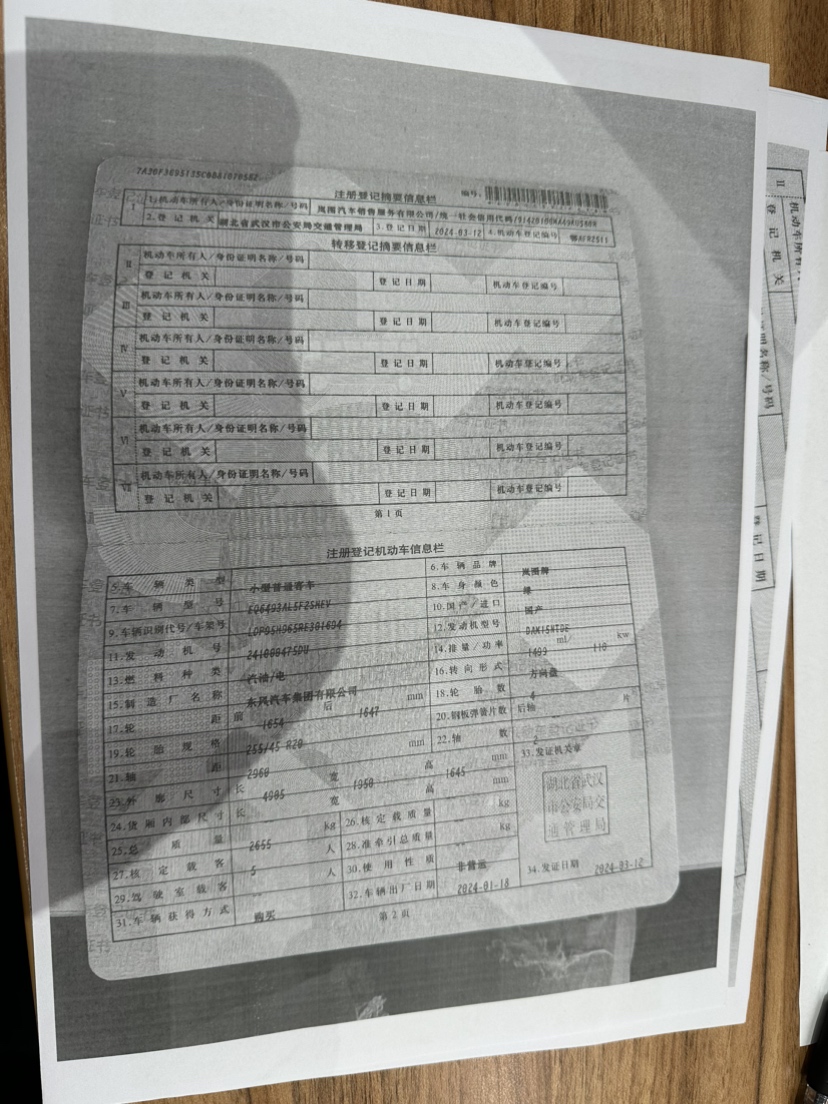 注册登记摘要信息栏
编号:
I
1.机动车所有人/身份证明名称/号码 岚图汽车销售服务有限公司/统一社会信用代码/
2.登记机关 湖北省武汉市公安局交通管理局 3.登记日期 2024-03-12 4.机动车登记编号
转移登记摘要信息栏
II 机动车所有人/身份证明名称/号码
登记机关 登记日期 机动车登记编号
III 机动车所有人/身份证明名称/号码
登记机关 登记日期 机动车登记编号
IV 机动车所有人/身份证明名称/号码
登记机关 登记日期 机动车登记编号
V 机动车所有人/身份证明名称/号码
登记机关 登记日期 机动车登记编号
VI 机动车所有人/身份证明名称/号码
登记机关 登记日期 机动车登记编号
VII 机动车所有人/身份证明名称/号码
登记机关 登记日期 机动车登记编号
第1页
注册登记机动车信息栏
5.车辆类型 小型普通客车 6.车辆品牌 岚图牌
7.车辆型号 8.车身颜色 绿
9.车辆识别代号/车架号 10.国产/进口 国产
11.发动机号 12.发动机型号
13.燃料种类 汽油/电 14.排量/功率 1499 ml 110 kw
15.制造厂名称 东风汽车集团有限公司 16.转向形式 方向盘
17.轮距 前 1654 后 1647 mm 18.轮胎数 4
19.轮胎规格 255/45 R20 20.钢板弹簧片数 后轴 片
21.轴距 2960 mm 22.轴数 2
23.外廓尺寸 长 4905 宽 1950 高 1645 mm 33.发证机关章
24.货厢内部尺寸 长 宽 高 mm
25.总质量 2655 kg 26.核定载质量 kg
27.核定载客 5 人 28.准牵引总质量 kg
29.驾驶室载客 人 30.使用性质 非营运
31.车辆获得方式 购买 32.车辆出厂日期 2024-01-18 34.发证日期 2024-03-12
湖北省武汉
市公安局交
通管理局
第2页
II
机动车所有人
登记机关
证明名称/号码
登记日期